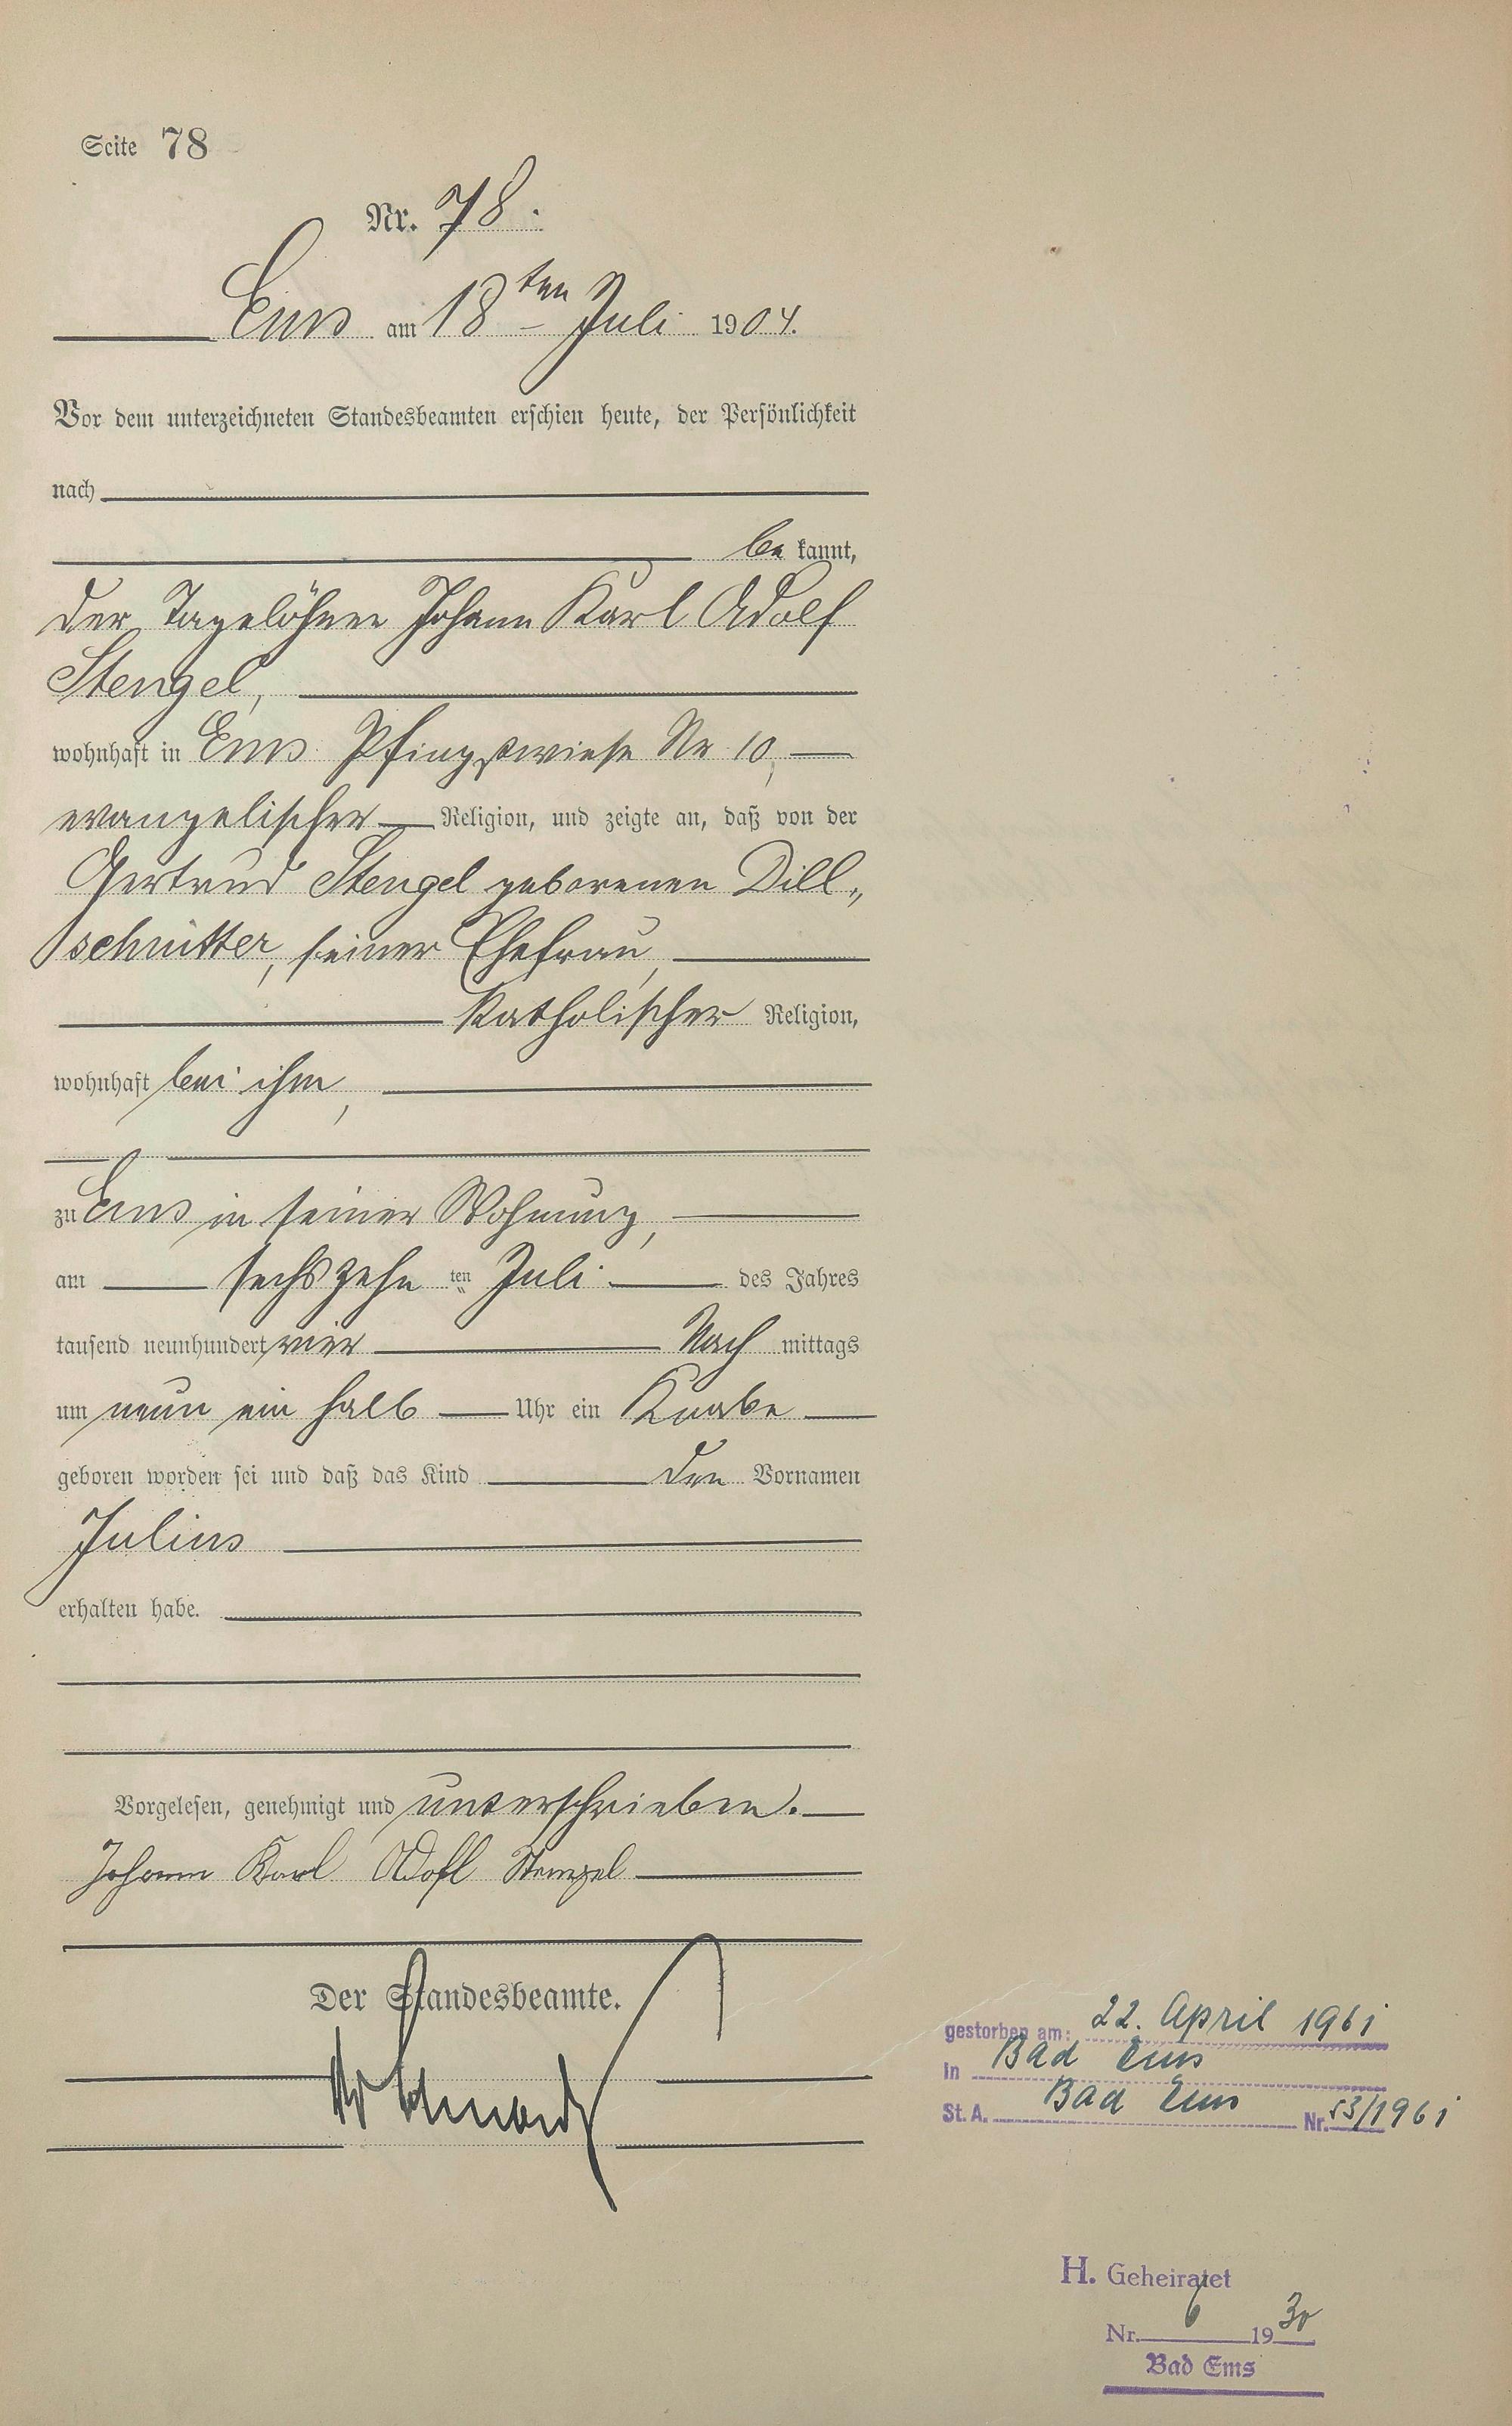 Seite 78
Nr. 78.
Ems am 18ten Juli 1904.
Vor dem unterzeichneten Standesbeamten erschien heute, der Persönlichkeit
nach
be kannt,
der Tagelöhner Johann Karl Adolf
Stengel,
wohnhaft in Ems Pfingstwiese Nr 10,
evangelischer Religion, und zeigte an, daß von der
Gertrud Stengel geborenen Dill„
schnitter, seiner Ehefrau,
katholischer Religion,
wohnhaft bei ihm,
zu Ems in seiner Wohnung,
am sechszehn ten Juli des Jahres
tausend neunhundert vier Nach mittags
um neun ein halb Uhr ein Knabe
geboren worden sei und daß das Kind den Vornamen
Julius
erhalten habe.
Vorgelesen, genehmigt und unterschrieben.
Johann Karl Adofl Stengel
Der Standesbeamte.
gestorben am: 22. April 1961
in Bad Ems
St. A. Bad Ems Nr. 53/1961
H. Geheiratet
Nr. 6 1930
Bad Ems